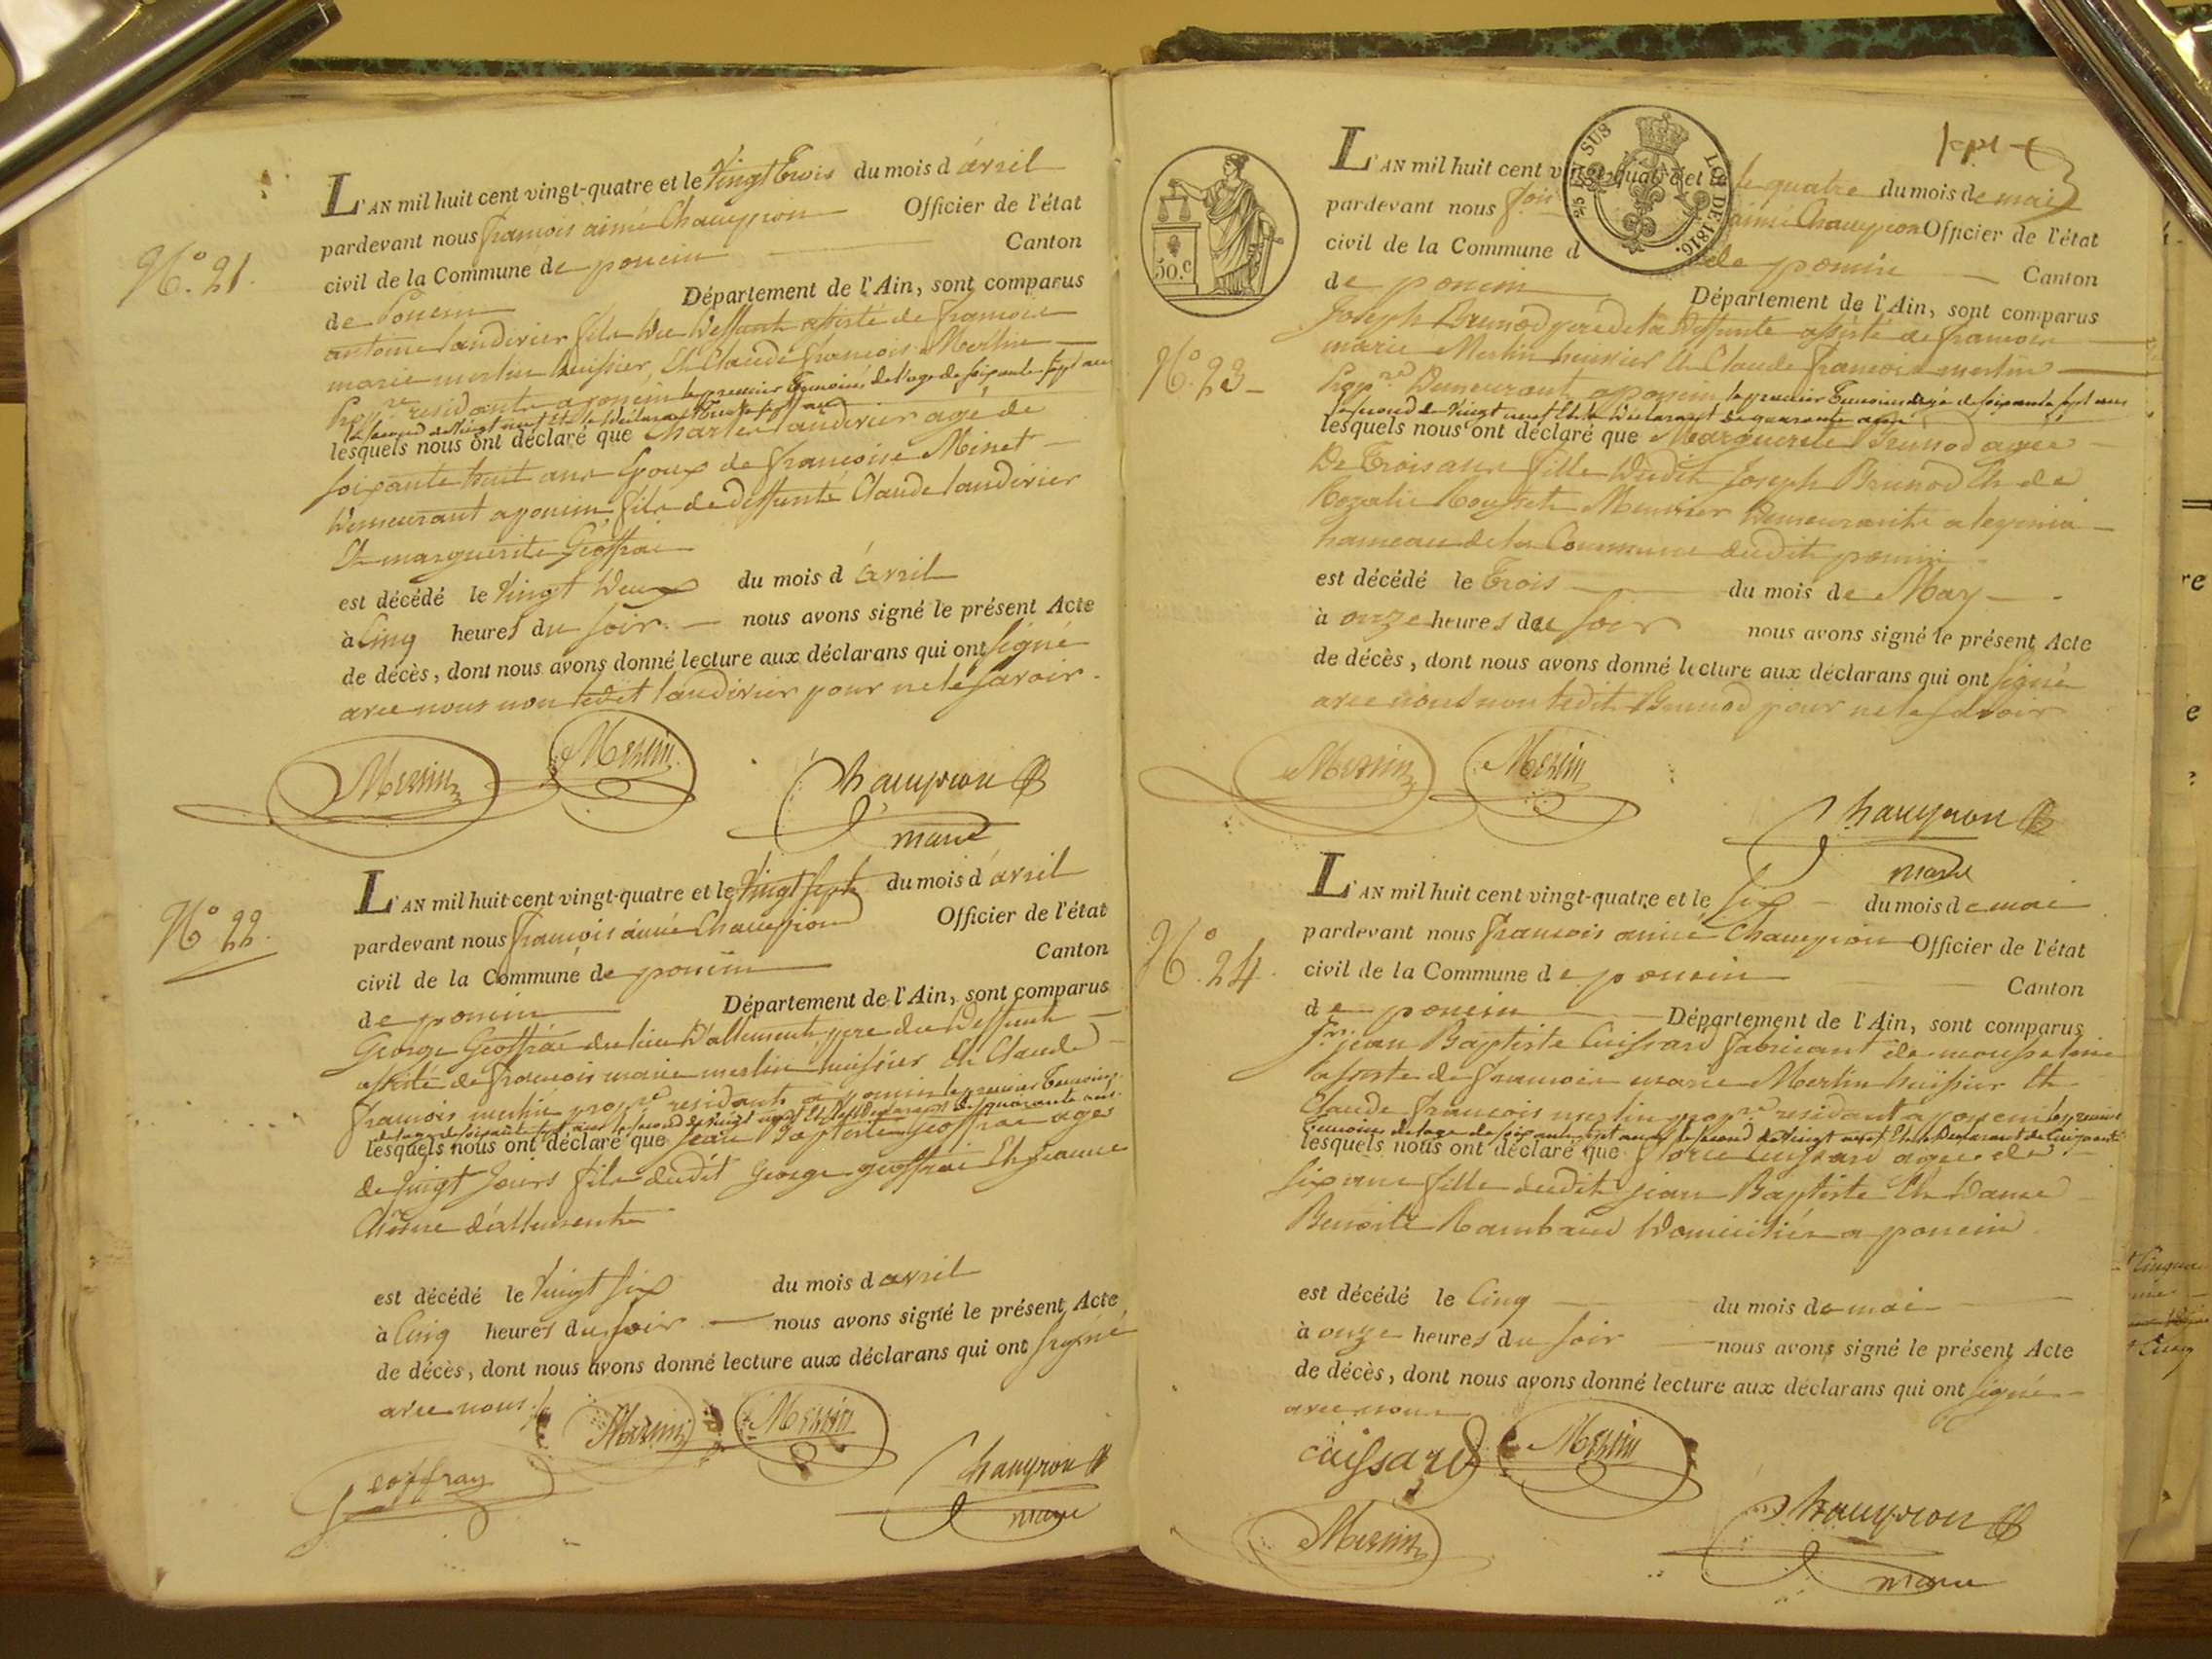 N.o 21.
L'AN mil huit cent vingt-quatre et le Vingt trois du mois d'avril
pardevant nous françois aimé Champion Officier de l'état
civil de la Commune de poncin Canton
de Poncin Département de l'Ain, sont comparus
antoine landirier fils du deffunt assisté de françois
marie merlin huissier, Et Claude françois Merlin
prop.re residants a poncin le premier Temoins de l'age de soixante sept ans
le second de vingt neuf Et le Declarant Trente sept ans
lesquels nous ont déclaré que Charles landirier agé de
soixante huit ans Epoux de françoise Minet
demeurant a poncin fils de deffunts Claude landirier
Et marguerite Geoffrai
est décédé le Vingt Deux du mois d'avril
à Cinq heures du soir. nous avons signé le présent Acte
de décès, dont nous avons donné lecture aux déclarans qui ont signé
avec nous non ledit landirier pour ne le savoir.
Merlin Merlin
Champion
maire
N.o 22.
L'AN mil huit cent vingt-quatre et le Vingt sept du mois d'avril
pardevant nous françois aimé Champion Officier de l'état
civil de la Commune de poncin Canton
de poncin Département de l'Ain, sont comparus
George Geoffrai du lieu D'allement pere du deffunt
assisté de françois marie merlin huissier Et Claude
françois merlin prop.re residants a poncin le premier Temoins
de l'age de soixante sept ans le second de vingt neuf Et le Declarant de quarante ans
lesquels nous ont déclaré que jean Baptiste Geoffrai agé
de vingt jours fils dudit George geoffrai Et jeanne
d'allement
est décédé le Vingt six du mois d avril
à Cinq heures du soir nous avons signé le présent Acte
de décès, dont nous avons donné lecture aux déclarans qui ont signé
avec nous
Merlin Merlin
Geoffray
Champion
maire
sept
EN SUS
LOI DE 1816.
50.c
N.o 23
L'AN mil huit cent vingt-quatre et le le quatre du mois de mai
pardevant nous aimé Champion Officier de l'état
civil de la Commune d de poncin Canton
de poncin Département de l'Ain, sont comparus
Joseph Brunod pere de la Deffunte assisté de françois
marie Merlin huissier Et Claude françois merlin
prop.re Demeurant a poncin le premier Temoins agé de soixante sept ans
le second de Vingt neuf Et le Declarant de quarante ans
lesquels nous ont déclaré que Marguerite Brunod agée
De Trois ans fille Dudit Joseph Brunod Et de
Rozalie Meunier Demeurants a
hameau de la Commune dudit poncin
est décédé le Trois du mois de May
à onze heures du soir nous avons signé le présent Acte
de décès, dont nous avons donné lecture aux déclarans qui ont signé
avec nous non ledit Brunod pour ne le savoir
Merlin Merlin
Champion
maire
N.o 24.
L'AN mil huit cent vingt-quatre et le six du mois de mai
pardevant nous françois aimé Champion Officier de l'état
civil de la Commune de poncin Canton
de poncin Département de l'Ain, sont comparus
jean Baptiste Cuissard fabricant de mousseline
assisté de françois marie Merlin huissier Et
Claude françois merlin prop.re residant a poncin le premier
Temoins de l'age de soixante sept ans le second de vingt neuf Et le Declarant de
lesquels nous ont déclaré que Cuissard agée de
six ans fille dudit jean Baptiste Et Dame
Benoite Rambaud Domiciliés a poncin
est décédé le Cinq du mois de mai
à onze heures du soir nous avons signé le présent Acte
de décès, dont nous avons donné lecture aux déclarans qui ont signé
avec nous
cuissard Merlin
Merlin
Champion
maire